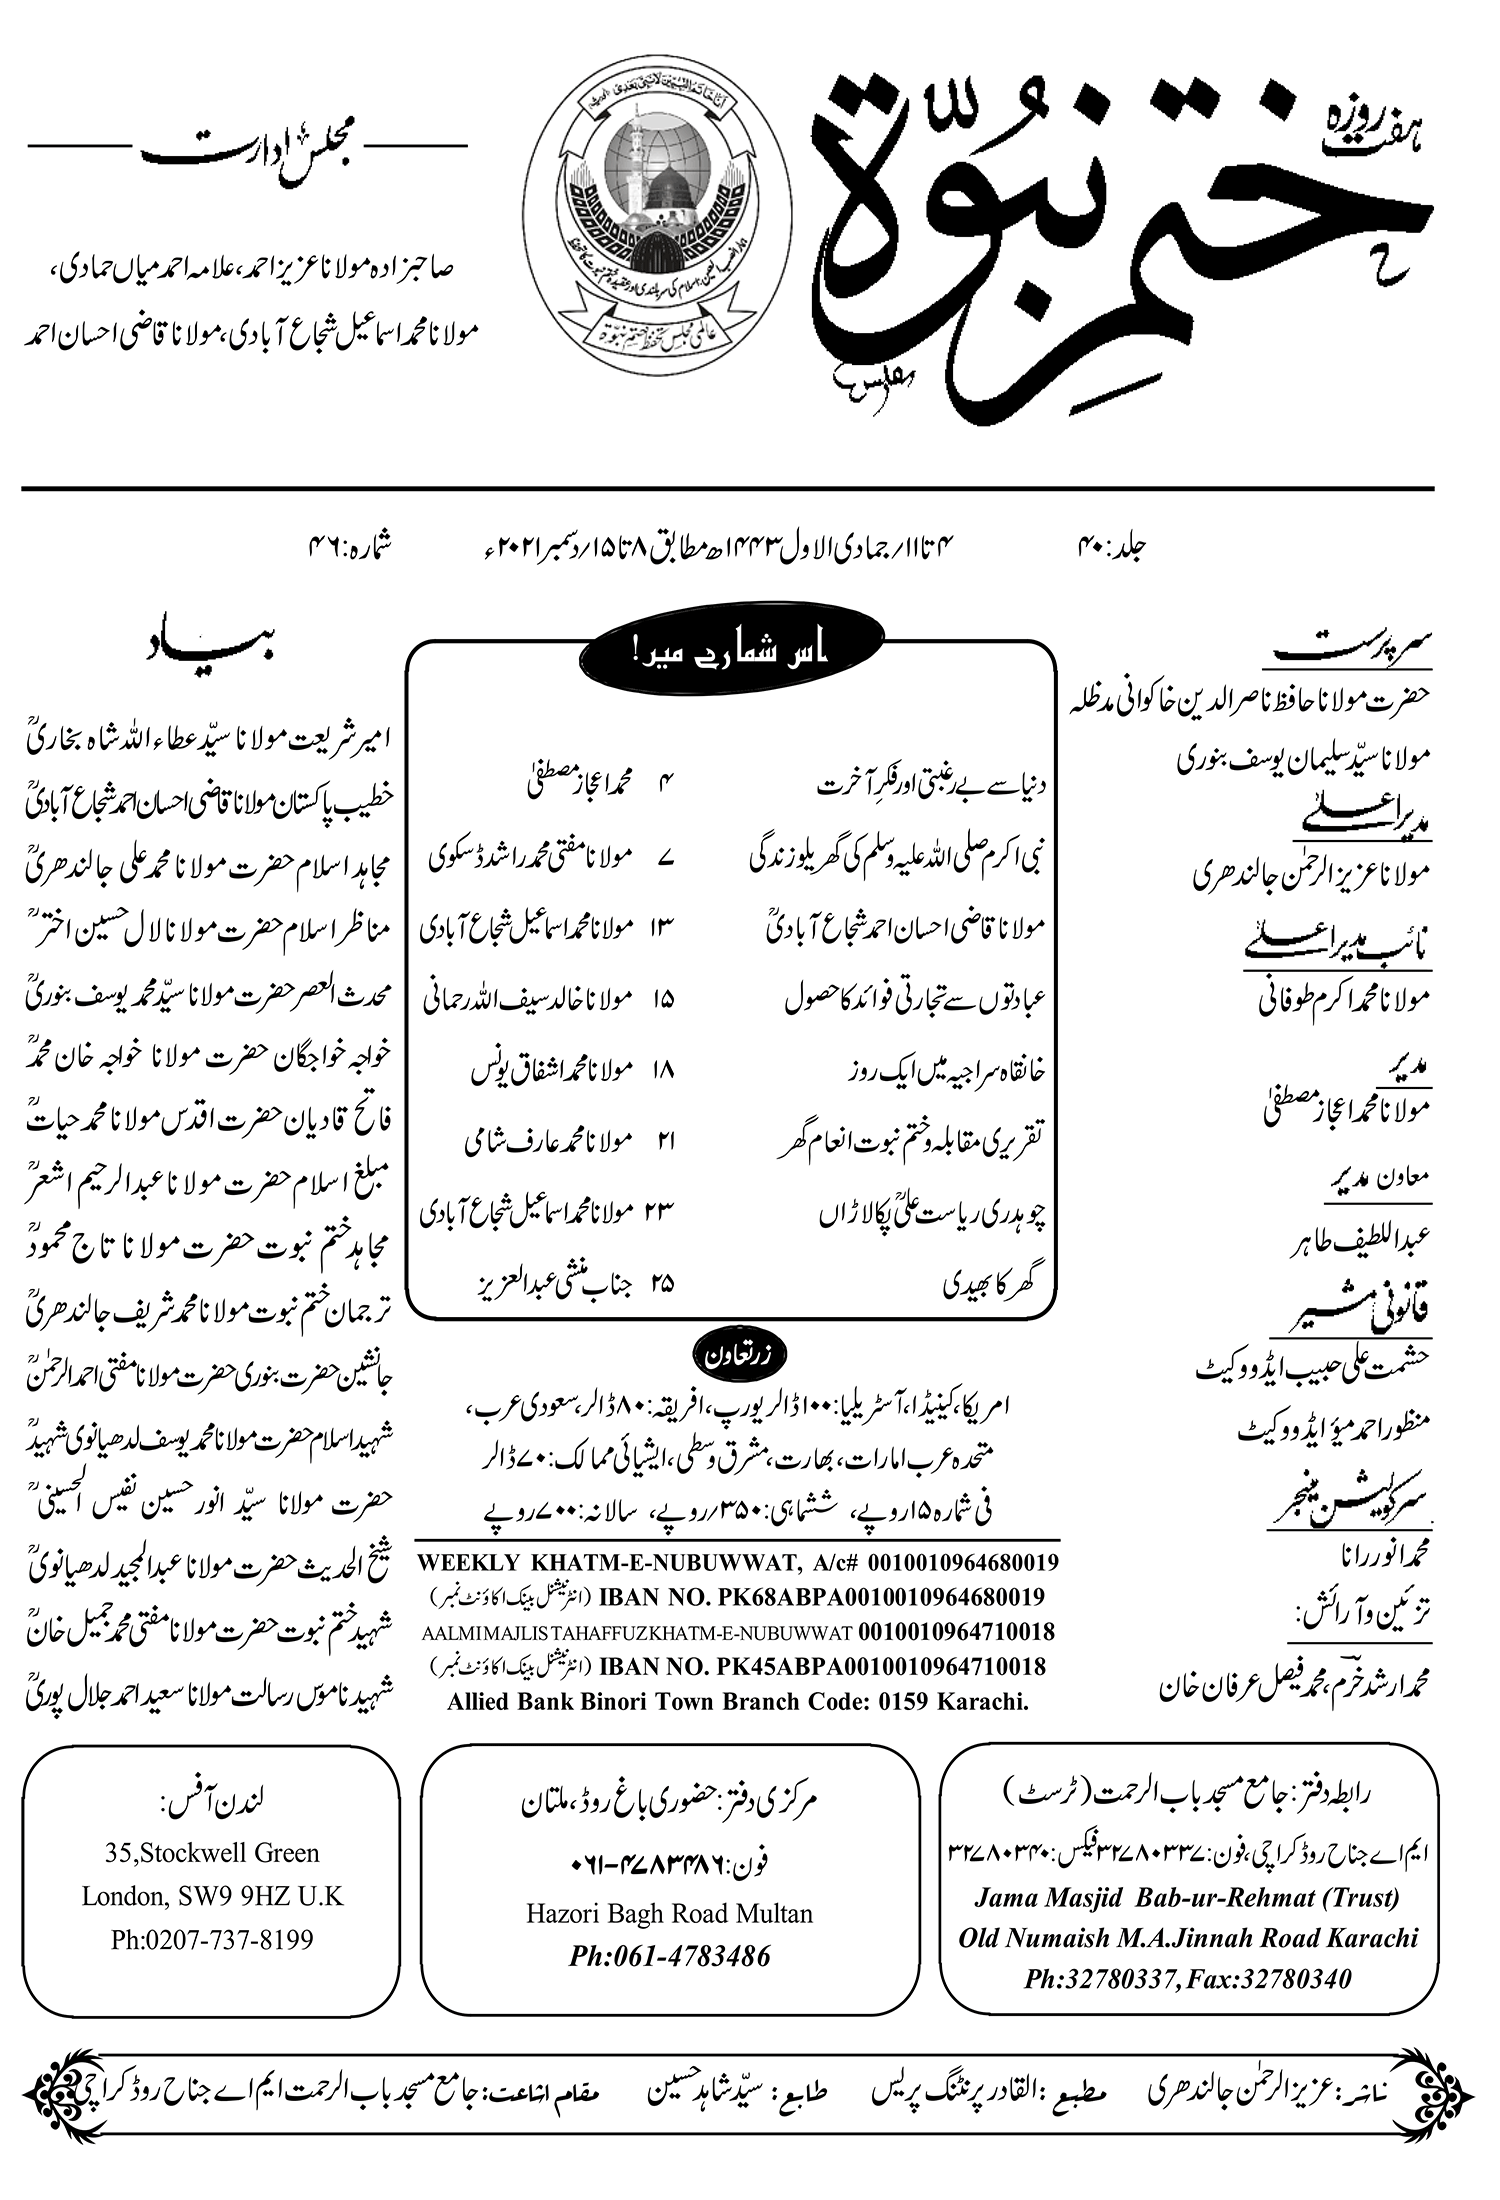 ہفت روزہ
ختم نبوّۃ
مجلس ادارت
صاحبزادہ مولانا عزیز احمد، علامہ احمد میاں حمادی،
مولانا محمد اسماعیل شجاع آبادی، مولانا قاضی احسان احمد
عالمی مجلس تحفظ ختم نبوۃ
جلد: ۴۰
۴ تا ۱۱/ جمادی الاول ۱۴۴۳ھ مطابق ۸ تا ۱۵/ دسمبر ۲۰۲۱ء
شمارہ: ۴۶
سرپرست
حضرت مولانا حافظ ناصر الدین خاکوانی مدظلہ
مولانا سیّد سلیمان یوسف بنوری
مدیر اعلیٰ
مولانا عزیز الرحمٰن جالندھری
نائب مدیر اعلیٰ
مولانا محمد اکرم طوفانی
مدیر
مولانا محمد اعجاز مصطفیٰ
معاون مدیر
عبد اللطیف طاہر
قانونی مشیر
حشمت علی حبیب ایڈووکیٹ
منظور احمد میؤ ایڈووکیٹ
سرکولیشن منیجر
محمد انور رانا
تزئین و آرائش:
محمد ارشد خرم، محمد فیصل عرفان خان
اس شمارے میں!
دنیا سے بے رغبتی اور فکرِ آخرت ۴ محمد اعجاز مصطفیٰ
نبی اکرم صلی اللہ علیہ وسلم کی گھریلو زندگی ۷ مولانا مفتی محمد راشد ڈسکوی
مولانا قاضی احسان احمد شجاع آبادیؒ ۱۳ مولانا محمد اسماعیل شجاع آبادی
عبادتوں سے تجارتی فوائد کا حصول ۱۵ مولانا خالد سیف اللہ رحمانی
خانقاہ سراجیہ میں ایک روز ۱۸ مولانا محمد اشفاق یونس
تقریری مقابلہ و ختم نبوت انعام گھر ۲۱ مولانا محمد عارف شامی
چوہدری ریاست علیؒ پکالاڑاں ۲۳ مولانا محمد اسماعیل شجاع آبادی
گھر کا بھیدی ۲۵ جناب منشی عبدالعزیز
زر تعاون
امریکا، کینیڈا، آسٹریلیا: ۱۰۰ ڈالر یورپ، افریقہ: ۸۰ ڈالر، سعودی عرب،
متحدہ عرب امارات، بھارت، مشرق وسطی، ایشیائی ممالک: ۷۰ ڈالر
فی شمارہ ۱۵ روپے، ششماہی: ۳۵۰/ روپے، سالانہ: ۷۰۰ روپے
WEEKLY KHATM-E-NUBUWWAT, A/c# 0010010964680019
IBAN NO. PK68ABPA0010010964680019 (انٹرنیشنل بینک اکاؤنٹ نمبر)
AALMI MAJLIS TAHAFFUZ KHATM-E-NUBUWWAT 0010010964710018
IBAN NO. PK45ABPA0010010964710018 (انٹرنیشنل بینک اکاؤنٹ نمبر)
Allied Bank Binori Town Branch Code: 0159 Karachi.
بیاد
امیر شریعت مولانا سیّد عطاء اللہ شاہ بخاریؒ
خطیب پاکستان مولانا قاضی احسان احمد شجاع آبادیؒ
مجاہد اسلام حضرت مولانا محمد علی جالندھریؒ
مناظر اسلام حضرت مولانا لال حسین اخترؒ
محدث العصر حضرت مولانا سیّد محمد یوسف بنوریؒ
خواجہ خواجگان حضرت مولانا خواجہ خان محمدؒ
فاتح قادیان حضرت اقدس مولانا محمد حیاتؒ
مبلغ اسلام حضرت مولانا عبد الرحیم اشعرؒ
مجاہد ختم نبوت حضرت مولانا تاج محمودؒ
ترجمان ختم نبوت مولانا محمد شریف جالندھریؒ
جانشین حضرت بنوری حضرت مولانا مفتی احمد الرحمٰنؒ
شہید اسلام حضرت مولانا محمد یوسف لدھیانوی شہیدؒ
حضرت مولانا سیّد انور حسین نفیس الحسینیؒ
شیخ الحدیث حضرت مولانا عبد المجید لدھیانویؒ
شہید ختم نبوت حضرت مولانا مفتی محمد جمیل خانؒ
شہید ناموس رسالت مولانا سعید احمد جلال پوریؒ
رابطہ دفتر: جامع مسجد باب الرحمت (ٹرسٹ)
ایم اے جناح روڈ کراچی، فون: ۳۲۷۸۰۳۳۷ فیکس: ۳۲۷۸۰۳۴۰
Jama Masjid Bab-ur-Rehmat (Trust)
Old Numaish M.A.Jinnah Road Karachi
Ph:32780337, Fax:32780340
مرکزی دفتر: حضوری باغ روڈ، ملتان
فون: ۰۶۱-۴۷۸۳۴۸۶
Hazori Bagh Road Multan
Ph:061-4783486
لندن آفس:
35,Stockwell Green
London, SW9 9HZ U.K
Ph:0207-737-8199
ناشر: عزیز الرحمٰن جالندھری مطبع: القادر پرنٹنگ پریس طابع: سیّد شاہد حسین مقام اشاعت: جامع مسجد باب الرحمت ایم اے جناح روڈ کراچی